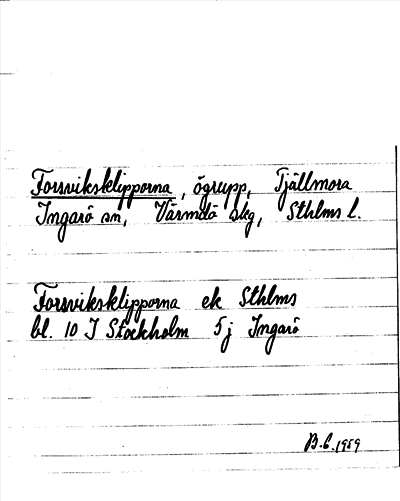 Forsviksklipporna, ögrupp, Tjällmora
Ingarö sn, Värmdö skg, Sthlms l.
Forsviksklipporna ek Sthlms
bl. 10 I Stockholm 5j Ingarö
B.C. 1959